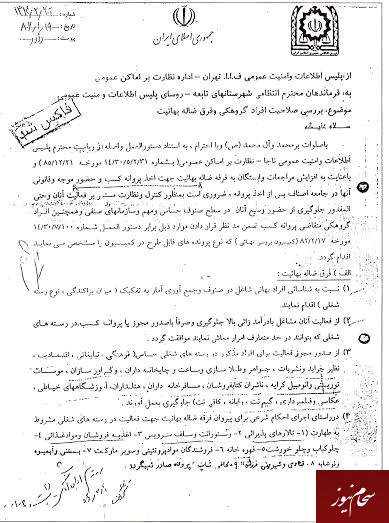 جمهوری اسلامی ایران
شماره:
تاریخ: ۸۶/۱/۱۹
پیوست: ندارد
از: پلیس اطلاعات وامنیت عمومی ف.ا.ا. تهران – اداره نظارت بر اماکن عمومی
به: فرماندهان محترم انتظامی شهرستانهای تابعه – روسای پلیس اطلاعات و امنیت عمومی
موضوع: بررسی صلاحیت افراد گروهکی وفرق ضاله بهائیت
فاکس شد
سلام علیکم
باصلوات برمحمد وآل محمد (ص) وبا احترام ، به استناد دستورالعمل واصله از ریاست محترم پلیس
اطلاعات وامنیت عمومی ناجا – نظارت بر اماکن عمومی( بشماره ۱۴/۳۰/۵/۲/۳۱ مورخه ۸۵/۱۲/۲۱ )
باعنایت به افزایش مراجعات وابستگان به فرقه ضاله بهائیت جهت اخذ پروانه کسب و حضور موجه وقانونی
آنها در جامعه اصناف پس از اخذ پروانه ، ضروری است بمنظور کنترل ونظارت مستمر بر فعالیت آنان وحتی
المقدور جلوگیری از حضور وسیع آنان در سطح صنوف حساس ومهم وسازمانهای صنفی وهمچنین افراد
گروهکی متقاضی پروانه کسب ضمن مد نظر قرار دادن موارد ذیل برابر دستور العمل شماره ۱۴/۳۰/۷/۱۰۰
مورخه ۸۲/۲/۱۷ (کمیسیون بررسی بهائی) که نوع پرونده های قابل طرح در کمیسیون را مشخص می نماید
اقدام گردد.
الف ) فرق ضاله بهائیت :
۱) نسبت به شناسائی افراد بهائی شاغل در صنوف وجمع آوری آمار به تفکیک ( میزان پراکندگی ، نوع رسته
شغلی ) اقدام نمایند.
۲) از فعالیت آنان مشاغل بادرآمد زائی بالا جلوگیری وصرفاً باصدور مجوز یا پروانه کسب در رسته های
شغلی که بتوانند در حد متعارف امرار معاش نمایند موافقت گردد.
۳) از صدور مجوز فعالیت برای افراد مذکور در رسته های شغلی حساس( فرهنگی ، تبلیغاتی ، اقتصادی،
نظیر جراید ونشریات ، جواهر وطلا سازی وساعت و چاپخانه داران ، وگراور سازان ، موسسات
توریستی واتومبیل کرایه ، ناشران کتابفروشان ، مسافرخانه داران ، هتلداران، آموزشگاههای خیاطی ،
عکاسی وفیلمبرداری ، گیم نت ، رایانه ، کافی نت) جلوگیری بعمل آورند.
۴) درراستای اجرای احکام شرعی برای پیروان فرقه ضاله بهائیت جهت فعالیت در رسته های شغلی مشروط
به طهارت (۱- تالارهای پذیرائی ۲- رستورانت وسلف سرویس ۳- اغذیه فروشان ومواد غذائی ۴-
چلوکباب وچلو خورشت ۵- قهوه خانه ۶- فروشندگان موادپروتئینی وسوپر مارکت ۷- بستنی وآبمیوه
ونوشابه ۸- قنادی وشیرینی فروشی ۹- کافی شاپ) پروانه صادر نمیگردد.
سحام نیوز